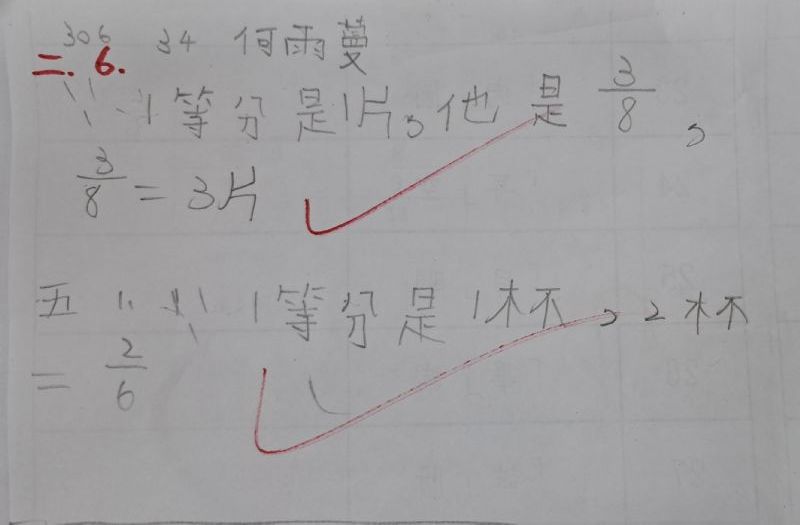 306 34 何雨蔓
二. 6.
∵ 1等分是1片,他是 3/8 ,
3/8 = 3片
五 1. ∵ 1等分是1杯,2杯
= 2/6